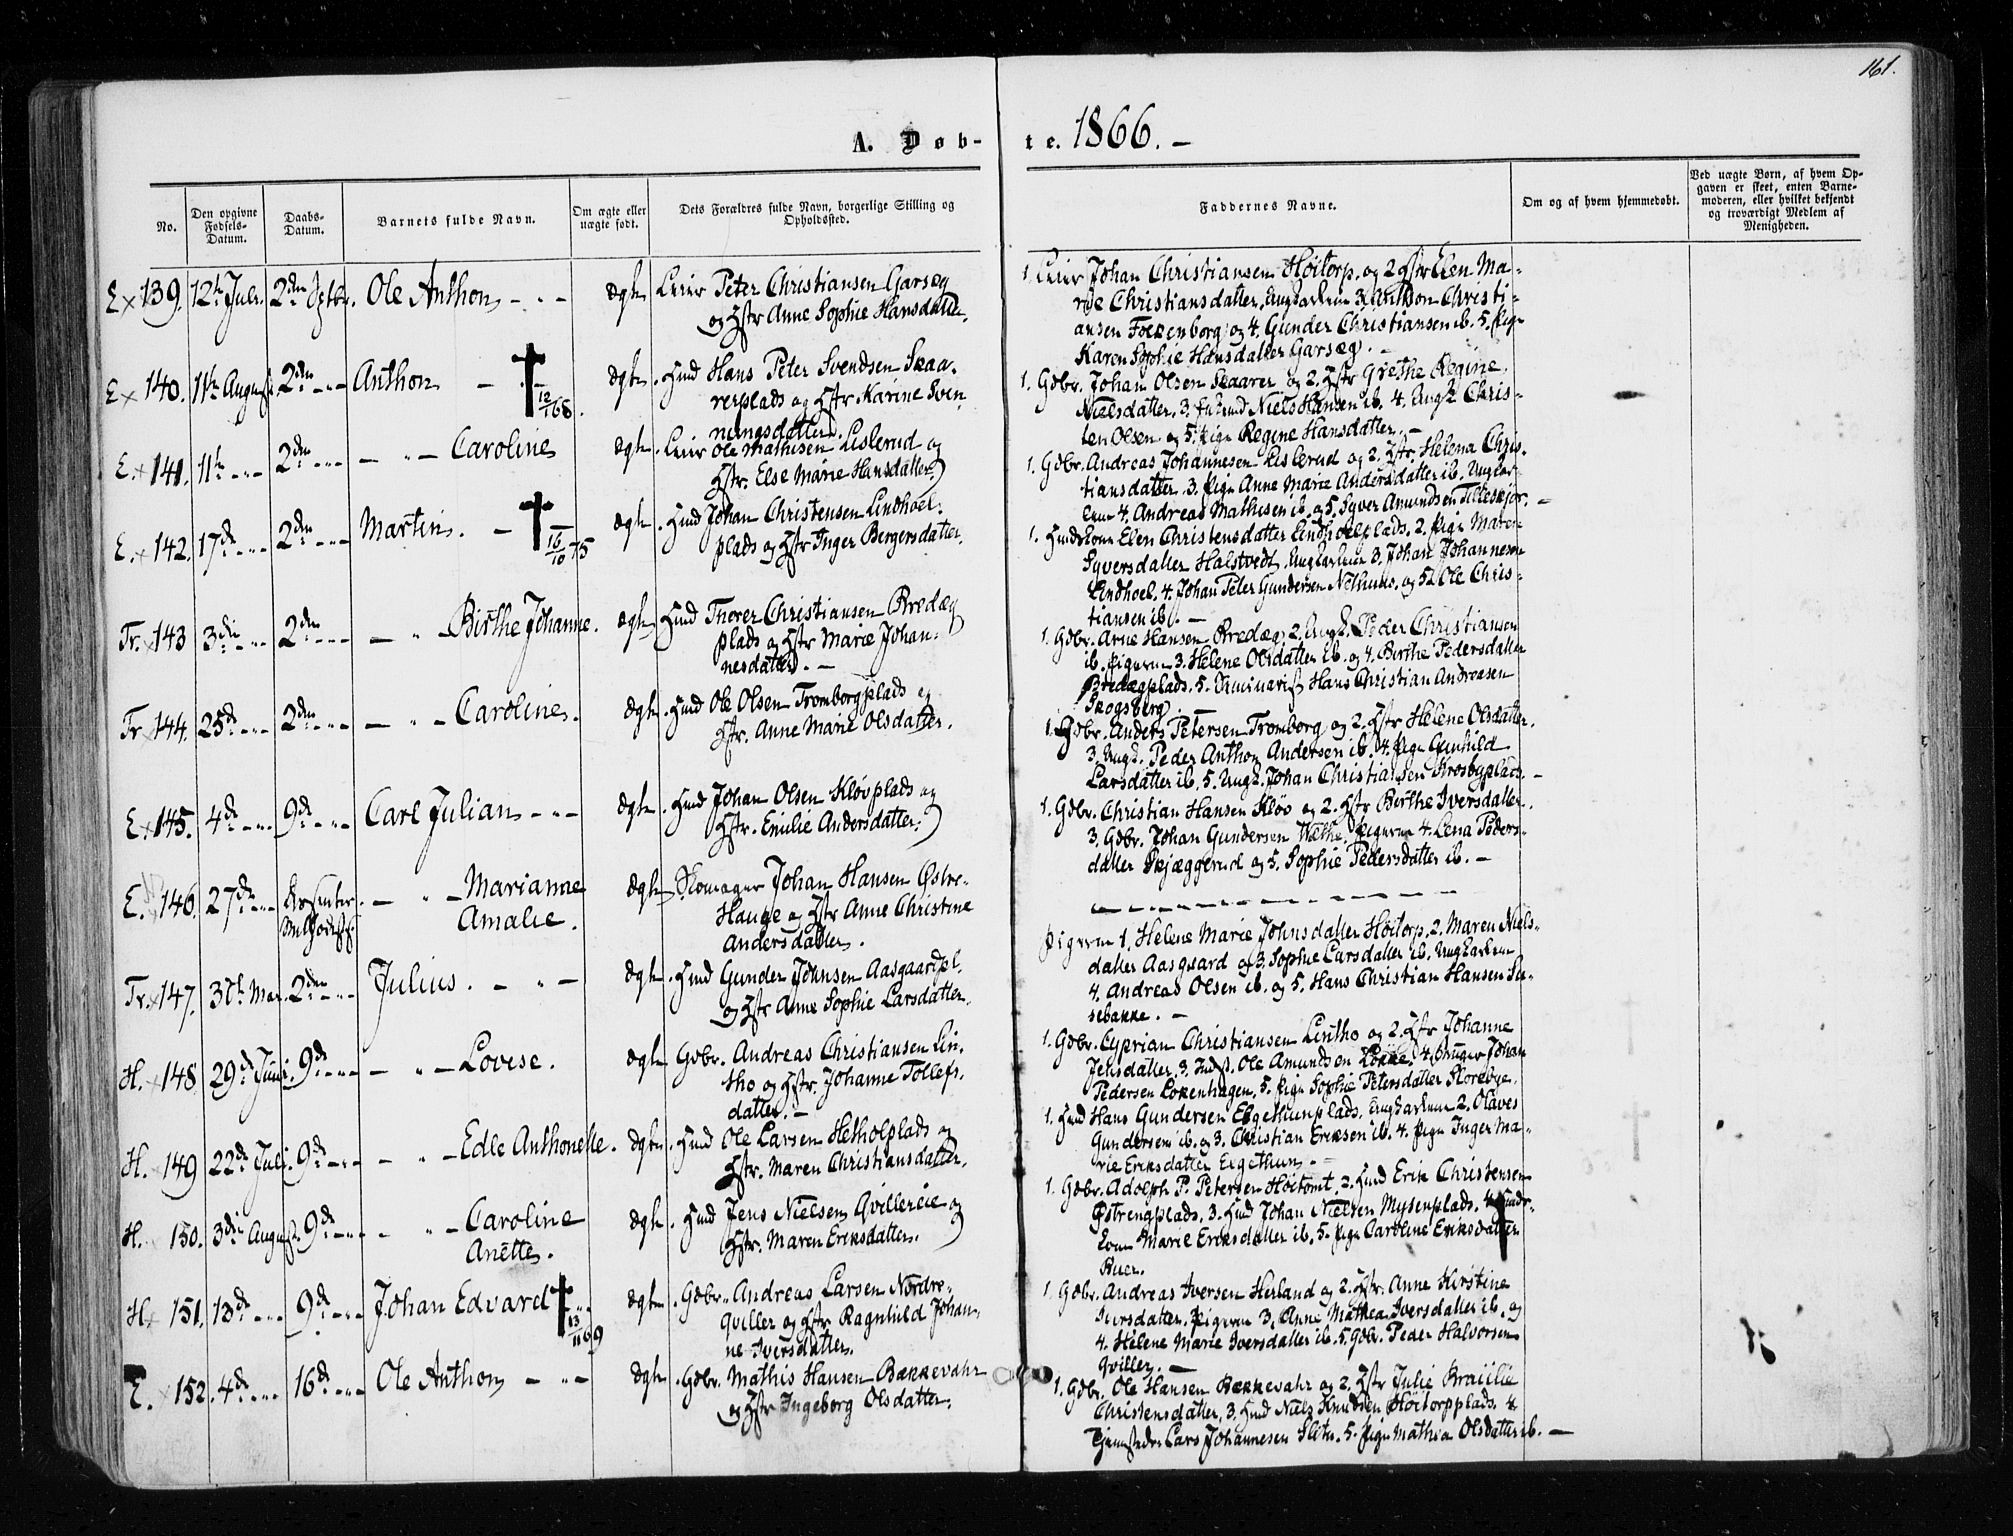 161.
A. Døb-
te. 1866. -
No.
Den opgivne Fødsels-Datum.
Daabs-Datum.
Barnets fulde Navn.
Om ægte eller uægte født.
Dets Forældres fulde Navn, borgerlige Stilling og Opholdssted.
Faddernes Navne.
Om og af hvem hjemmedøbt.
Ved uægte Børn, af hvem Opgaven er skeet, enten Barnemoderen, eller hvilket bekjendt og troværdigt Medlem af Menigheden.
E x 139. 12te Juli. 2den Sptbr. Ole Anthon - " - ægte Leier Peter Christiansen Garsæg
og Hstr Anne Sophie Hansdatter.
1. Leier Johan Christiansen Høitorp, og 2 Hstr Elen Ma-
rie Christiansdatter, Ungkarlene 3. Anthon Christi-
ansen Fokkenborg og 4. Gunder Christiansen ib. 5. Pige
Karen Sophie Hansdatter Garsæg. -
E x 140. 11te August. 2den - " - Anthon - † 12/1 68. ægte. Hmd Hans Peter Svendsen Skaa-
rerplads og Hstr Karine Sven-
ningsdatter.
1. Gdbr. Johan Olsen Skaarer og 2. Hstr Grethe Regine
Nielsdatter. 3. Niels Hansen ib. 4. Ungk Chris-
ten Olsen og 5. Pige Regine Hansdatter. -
E. x 141. 11te - " - 2den - " - - " - Caroline ægte. Leier Ole Mathisen Lislerud og
Hstr. Else Marie Hansdatter.
1. Gdbr. Andreas Johannesen Lislerud og 2. Hstr. Helena Chris-
tiansdatter. 3. Pige Anne Marie Andersdatter ib. Ungkar-
lene 4. Andreas Mathisen ib. og 5. Syver Amundsen -
E. x 142. 17de - " - 2den - " - Martin. - † 16/10 75 ægte. Hmd Johan Christensen Lindhoel-
plads og Hstr Inger Bergersdatter.
1. Elen Christensdatter Lindhoelplads. 2. Pige Maren
Syversdatter Halstvedt. Ungkarlene 3. Johan Johannesen
Lindhoel. 4. Johan Peter Gundersen og 5. Ole Chris-
tiansen ib. -
Tr. x 143 3die - " - 2den - " - - " - Birthe Johanne. ægte. Hmd Thorer Christiansen Bredæg
plads og Hstr Marie Johan-
nesdatter. -
1. Gdbr. Arne Hansen Bredæg, 2. Ungk. Peder Christiansen
ib. Pigerne 3. Helene Olsdatter ib. og 4. Birthe Pedersdatter
Bredægplads. 5. Seminarist Hans Christian Andreasen
Skogsberg.
Tr x 144. 25de - " - 2den - " - - " - Caroline. ægte. Hmd Ole Olsen Tromborgplads og
Hstr. Anne Marie Olsdatter.
1. Gdbr. Anders Petersen Tromborg og 2. Hstr Helene Olsdatter.
3. Ungk. Peder Anthon Andersen ib. 4. Pige Gunhild
Larsdatter ib. 5. Ungk. Johan Christiansen Krosbyplads -
E x 145. 4de - " - 9de - " - Carl Julian - " - ægte. Hmd Johan Olsen Kløvplads og
Hstr. Emilie Andersdatter.
1. Gdbr. Christian Hansen Kløv og 2. Hstr Berthe Iversdatter.
3. Gdbr. Johan Gundersen Pigerne 4. Lena Peders-
datter Skjæggerud og 5. Sophie Pedersdatter ib. -
E. 146. 27de - " - Dissenter. Methodist. - " - Marianne
Amalie. ægte Skomager Johan Hansen Østre-
Hauge og Hstr Anne Christine
Andersdatter.
- - - - - - - - -
Tr. x 147. 31te Mai. 2den - " - Julius. - " - ægte. Hmd Gunder Johnsen Aasgaardpl.
og Hstr Anne Sophie Larsdatter.
Pigerne 1. Helene Marie Johnsdatter Høitorp. 2. Maren Niels-
datter Aasgaard og 3. Sophie Larsdatter ib. Ungkarlene
4. Andreas Olsen ib. og 5. Hans Christian Hansen
sebakke. -
H. x 148 29de Juni. 9de - " - - " - Lovise. ægte Gdbr. Andreas Christiansen Lin-
tho og Hstr. Johanne Tollefs-
datter. -
1. Gdbr. Cyprian Christiansen Lintho og 2. Hstr Johanne
Jensdatter. 3. Indst. Ole Amundsen Løkke. 4. Bruger Johan
Pedersen Lokenhagen. 5. Pige Sophie Petersdatter Storebye.
H. x 149 22de Juli. 9de - " - - " - Edle Anthonelle. ægte. Hmd Ole Larsen Hetholplads og
Hstr. Maren Christiansdatter.
1. Hmd Hans Gundersen Egethunplads. Ungkarlene 2. Olaves
Gundersen ib. og 3. Christian Eriksen ib. 4. Pige Inger Ma-
rie Eriksdatter Eigethun. -
H. 150. 3die August. 9de - " - - " - Caroline
Anette. ægte. Hmd Jens Nielsen Qvillereie og
Hstr. Maren Eriksdatter.
1. Gdbr. Adolph P. Petersen Høitomt, 2. Hmd Erik Christensen
Østrengplads. 3. Hmd Johan Nielsen Mysenplads. 4.
Marie Eriksdatter ib. 5. Pige Caroline Eriksdatter
Buer.
H x 151. 13de - " - 9de - " - Johan Edvard † 13/11 69 ægte. Gdbr. Andreas Larsen Nordre-
Qviller og Hstr Ragnhild Johan-
ne Iversdatter.
1. Gdbr. Andreas Iversen Herland og 2. Hstr. Anne Kirstine
Iversdatter. Pigerne 3. Anne Mathea Iversdatter ib. og
4. Helene Marie Iversdatter ib. 5. Gdbr. Peder Halvorsen
Qviller. -
E. x 152. 4de - " - 16de - " - Ole Anthon - " - ægte. Gdbr. Mathis Hansen Bækkevahr
og Hstr Ingeborg Olsdatter.
1. Gdbr. Ole Hansen Bækkevahr og 2. Hstr Julie
Christensdatter, 3. Hmd Niels Knudsen Høitorpplads. 4
Lars Johannesen 5. Pige Mathea Olsdatter ib. -